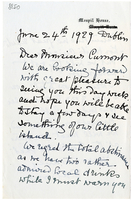 Mespil House,
June 24th 1929 Dublin
Dear Monsieur Cumont
We are looking forward
with great pleasure to
seeing you this day week
and hope you will be able
to stay a few days & see
something of our little
island.
We regret the total abstinence
as we have two rather
admired local drinks
while I must warn you